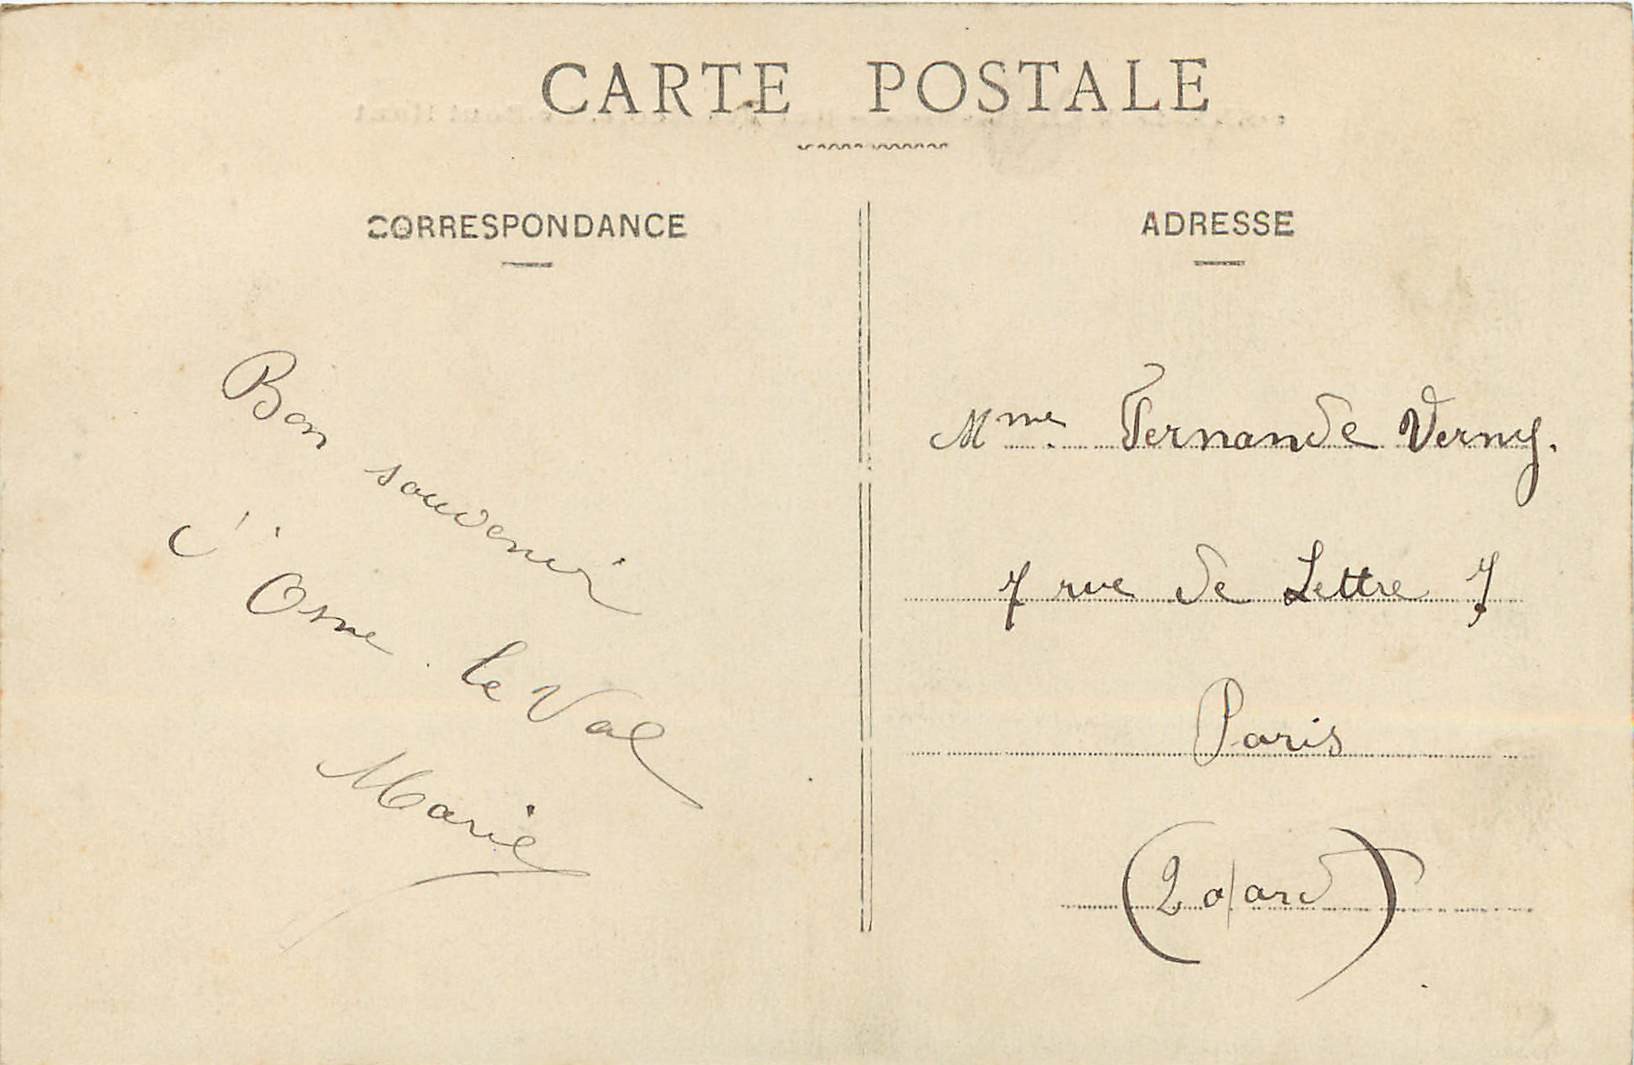 CARTE POSTALE
CORRESPONDANCE
Bon souvenir
d'Osne le Val
Marie
ADRESSE
Mme Fernande Verny.
7 rue de Lettre 7
Paris
(20 ard)